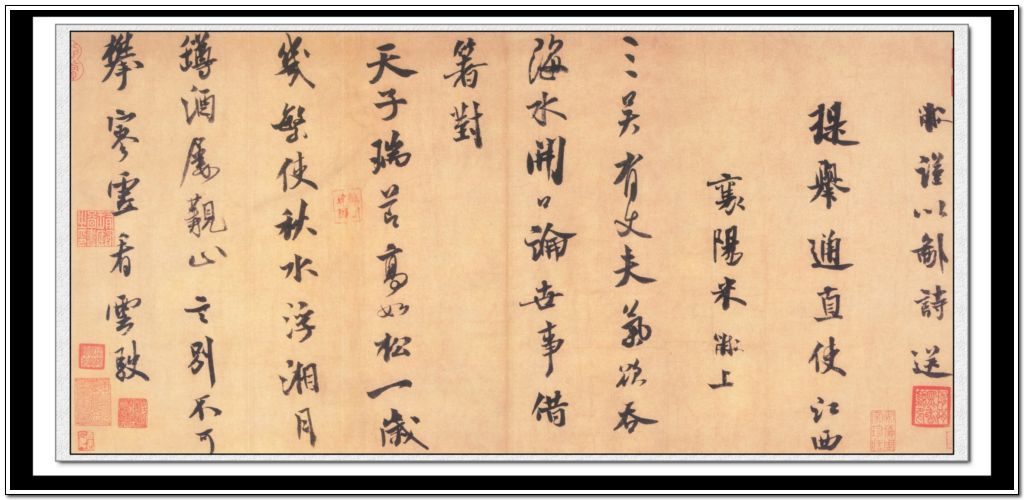 黻謹以鄙詩送
提舉通直使江西
襄陽米黻上
三吳有丈夫氣欲吞
海水開口論世事借
箸對
天子瑞節高如松一歲
幾槃使秋水浮湘月
罇酒屢覯止言別不可
攀寒雲看雲駛